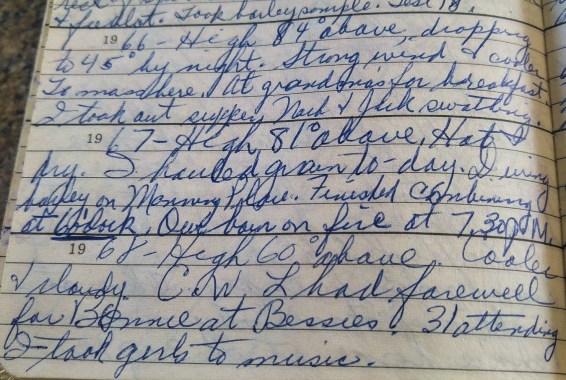 & feedlot. Took barley sample. Test 18.
1966 - High 84° above, dropping
to 45° by night. Strong wind & cooler
To mass here. At grandma's for breakfast.
I took out supper. Nick & Jack swathing.
1967 - High 81° above, Hot &
dry. I hauled grain to-day.
barley on Manning Place. Finished Combining
at 6 o'clock, Our barn on fire at 7.30 P.M.
1968 - High 60° above. Cooler
& cloudy. C.W.L had farewell
for Bonnie at Bessies. 31 attending
I took girls to music.